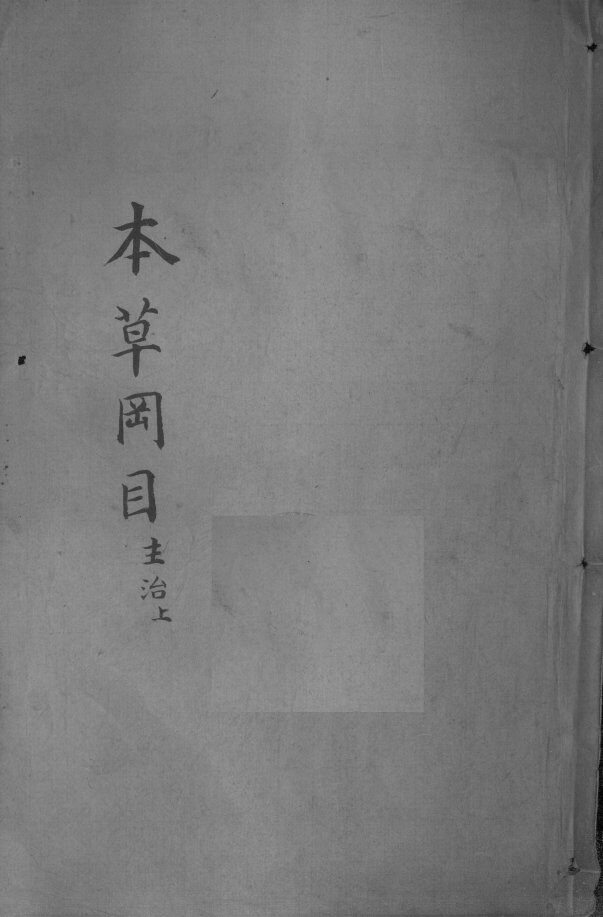 本草岡目主治上